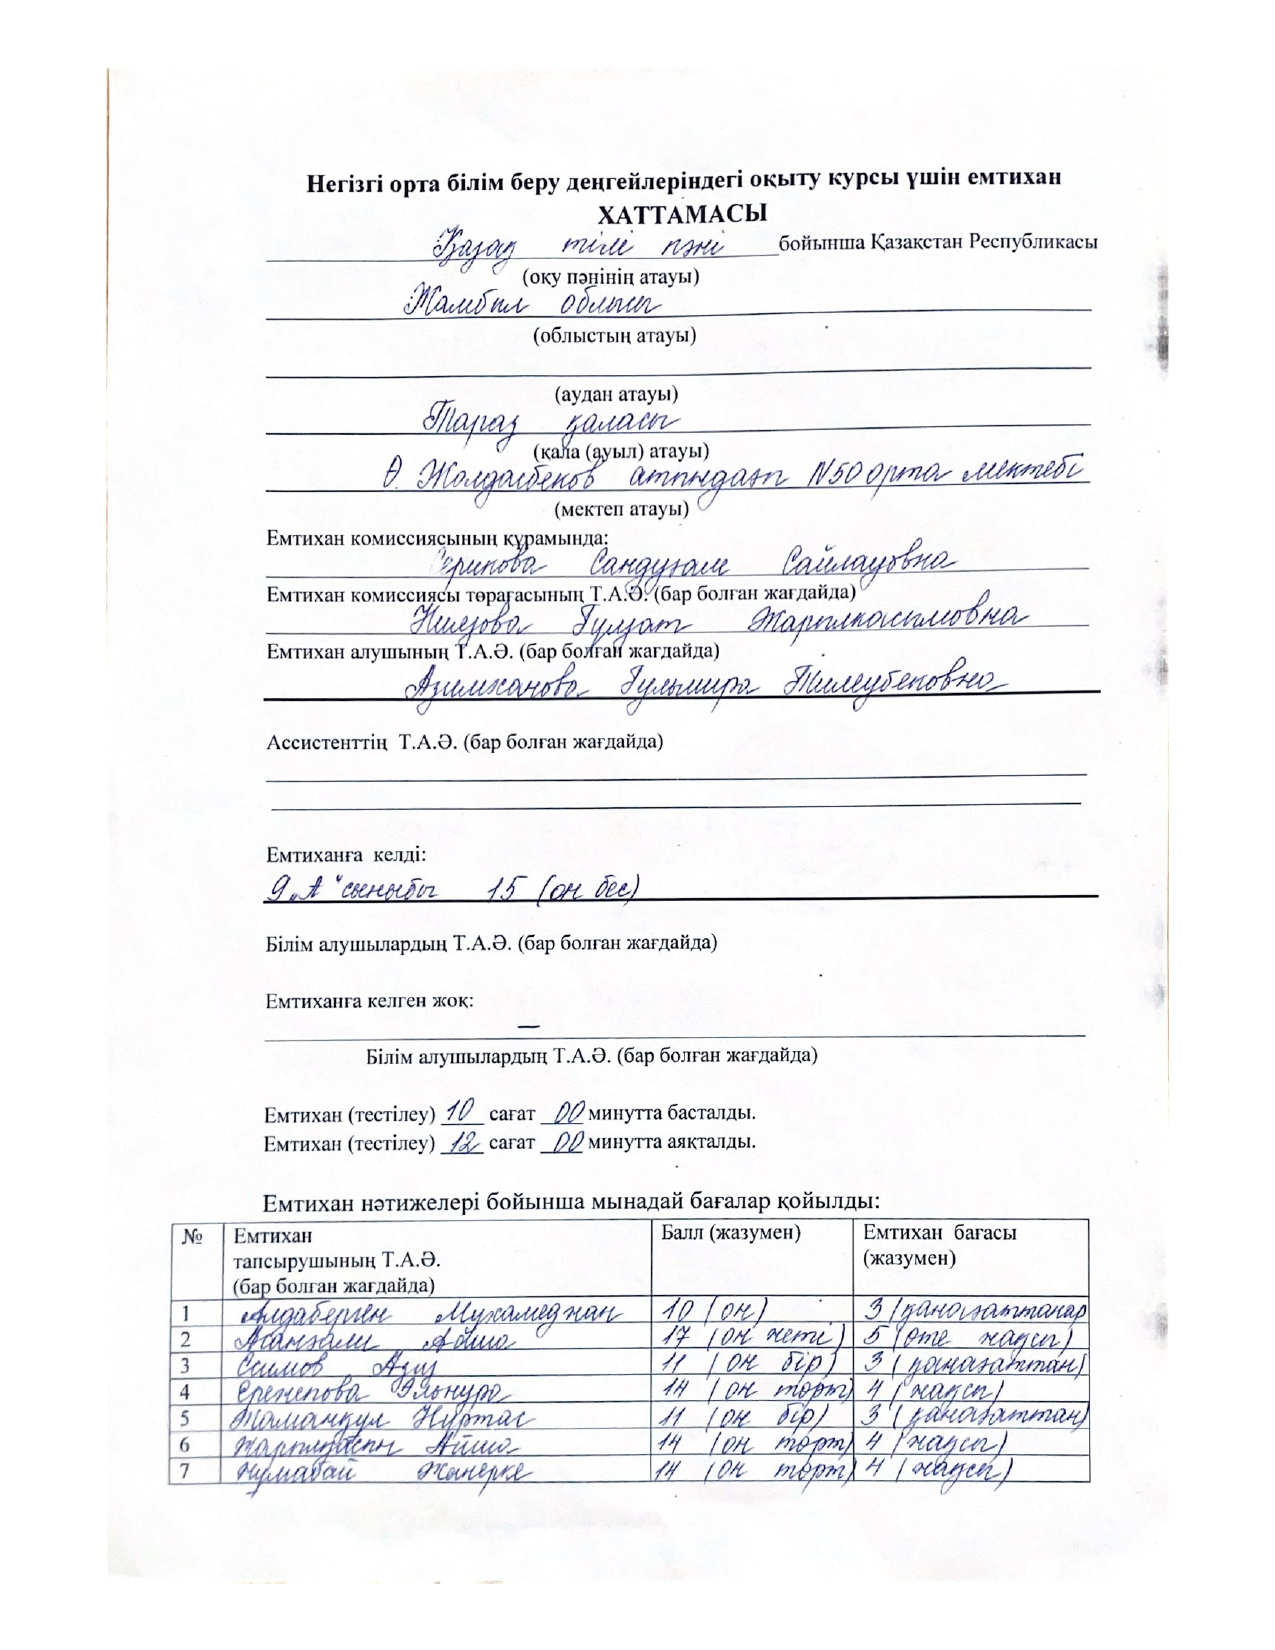 Негізгі орта білім беру деңгейлеріндегі оқыту курсы үшін емтихан
ХАТТАМАСЫ
Қазақ тілі пәні бойынша Қазақстан Республикасы
(оқу пәнінің атауы)
Жамбыл облысы
(облыстың атауы)
(аудан атауы)
Тараз қаласы
(қала (ауыл) атауы)
Ө. Жолдасбеков атындағы N50 орта мектебі
(мектеп атауы)
Емтихан комиссиясының құрамында:
Серикова Сандуғаш Сайлауовна
Емтихан комиссиясы төрағасының Т.А.Ә. (бар болған жағдайда)
Ниязова Гулзат Жарылкасымовна
Емтихан алушының Т.А.Ә. (бар болған жағдайда)
Азимханова Гульмира Тилеубековна
Ассистенттің Т.А.Ә. (бар болған жағдайда)
Емтиханға келді:
9 „А“ сыныбы 15 (он бес)
Білім алушылардың Т.А.Ә. (бар болған жағдайда)
Емтиханға келген жоқ:
—
Білім алушылардың Т.А.Ә. (бар болған жағдайда)
Емтихан (тестілеу) 10 сағат 00 минутта басталды.
Емтихан (тестілеу) 12 сағат 00 минутта аяқталды.
Емтихан нәтижелері бойынша мынадай бағалар қойылды:
№ Емтихан тапсырушының Т.А.Ә. (бар болған жағдайда) Балл (жазумен) Емтихан бағасы (жазумен)
1 Алдаберген Мухамеджан 10 (он) 3 (қанағаттанар
2 Асанғали Айша 17 (он жеті) 5 (өте жақсы)
3 Есимов Азиз 11 (он бір) 3 (қанағаттан)
4 Ережепова Эльнура 14 (он төрт) 4 (жақсы)
5 Жаманқул Нұртас 11 (он бір) 3 (қанағаттан)
6 Жарылқасын Айша 14 (он төрт) 4 (жақсы)
7 Жумабай Жанерке 14 (он төрт) 4 (жақсы)